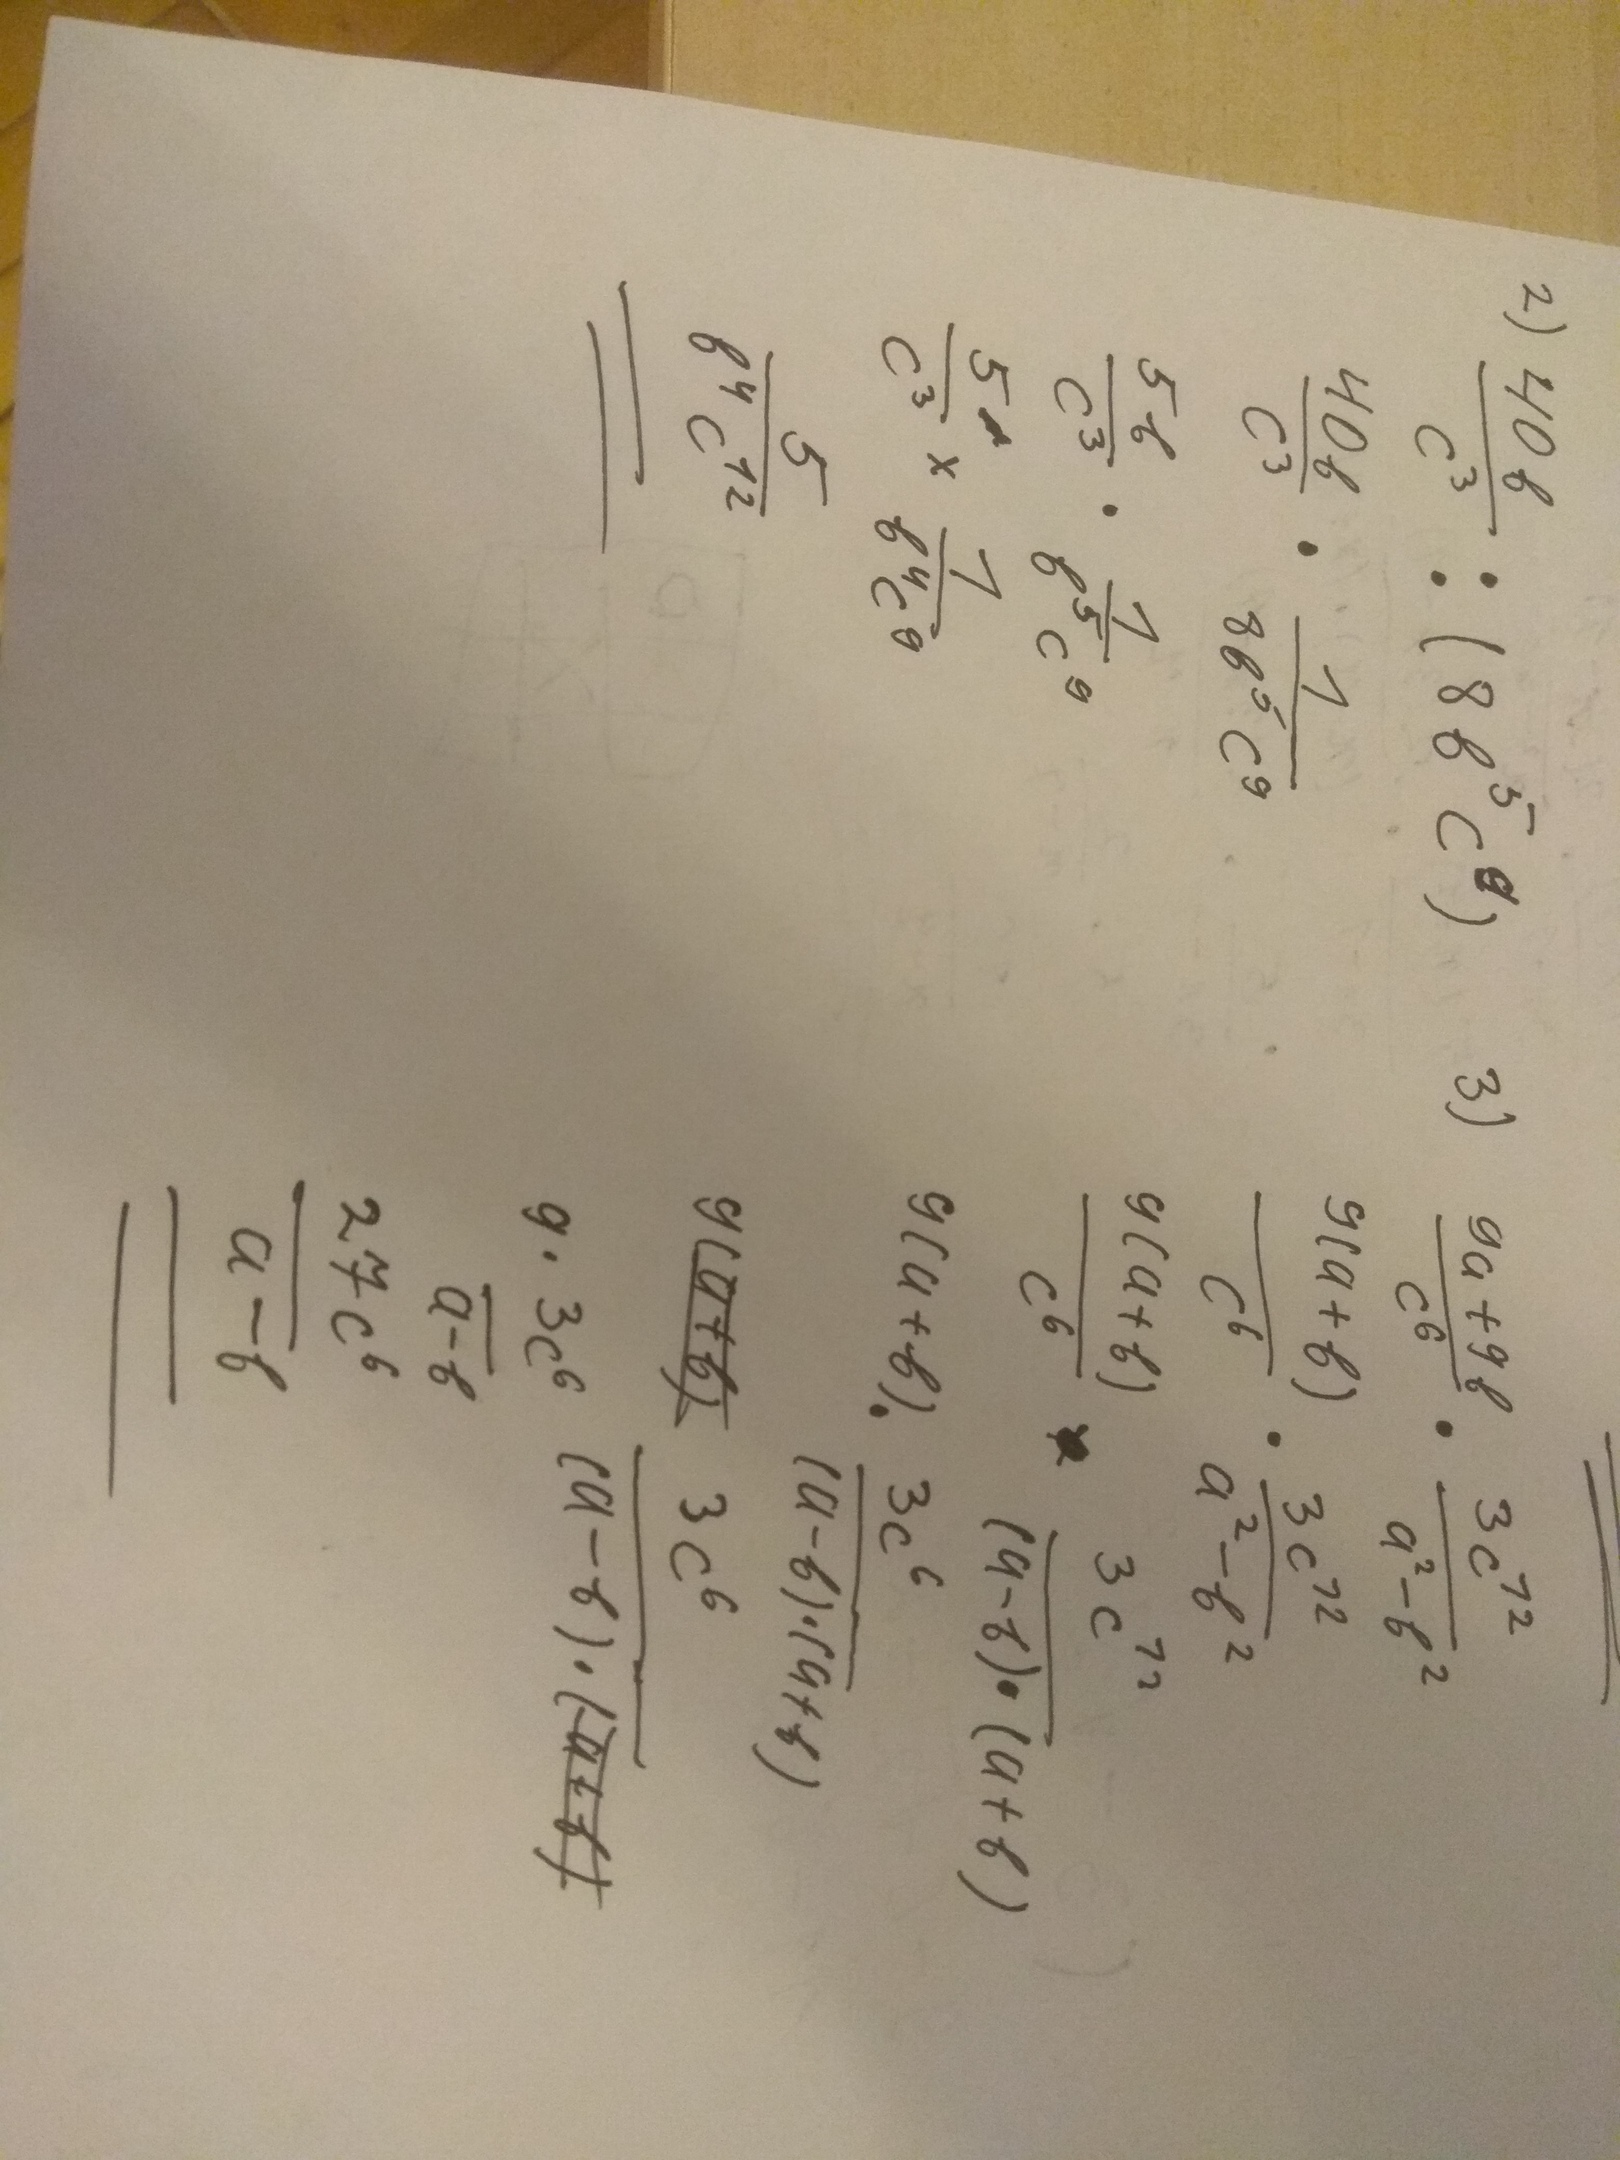 2) 40b/c³ : (8b⁵c⁹)
40b/c³ · 1/8b⁵c⁹
5b/c³ · 1/b⁵c⁹
5/c³ × 1/b⁴c⁹
5/b⁴c¹²
3) 9a+9b/c⁶ · 3c¹²/a²-b²
9(a+b)/c⁶ · 3c¹²/a²-b²
9(a+b)/c⁶ · 3c¹²/(a-b)·(a+b)
9(a+b) · 3c⁶/(a-b)·(a+b)
9(a+b) 3c⁶/(a-b)·(a+b)
9·3c⁶/a-b
27c⁶/a-b